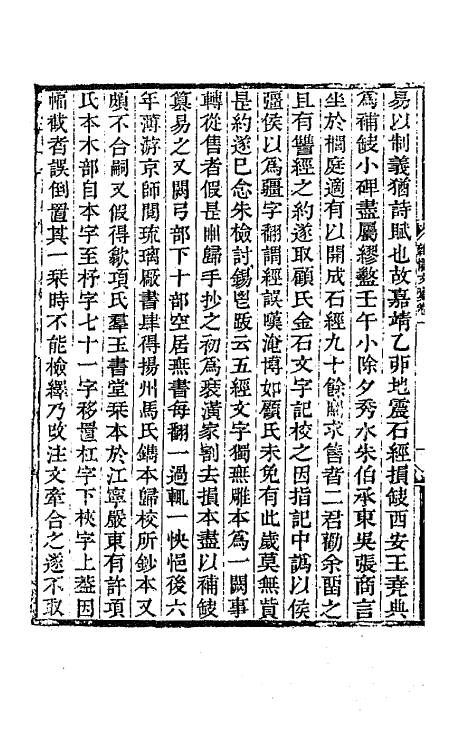 易以制義猶詩賦也故嘉靖乙卯地震石經損缺西安王堯典
為補缺小碑盡屬繆盭壬午小除夕秀水朱伯承東吳張商言
坐於櫚庭適有以開成石經九十餘𢎥求售者二君勸余畱之
且有讐經之約遂取顧氏金石文字記校之因指記中譌以侯
彊侯以為疆字翻謂經誤嘆淹博如顧氏未免有此歲莫無貲
是約遂已念朱檢討錫鬯跋云五經文字獨無雕本為一闕事
轉從售者假是冊歸手抄之初為裒潢家割去損本盡以補缺
篡易之又闕弓部下十部空居燕書每翻一過輒一怏悒後六
年薄游京師閒琉璃廠書肆得揚州馬氏鐫本歸校所鈔本又
頗不合嗣又假得歙項氏羣玉書堂栞本於江寧嚴東有許項
氏本木部自本字至杍字七十一字移置杠字下梜字上葢因
幅截者誤倒置其一栞時不能檢繹乃改注文牽合之遂不取